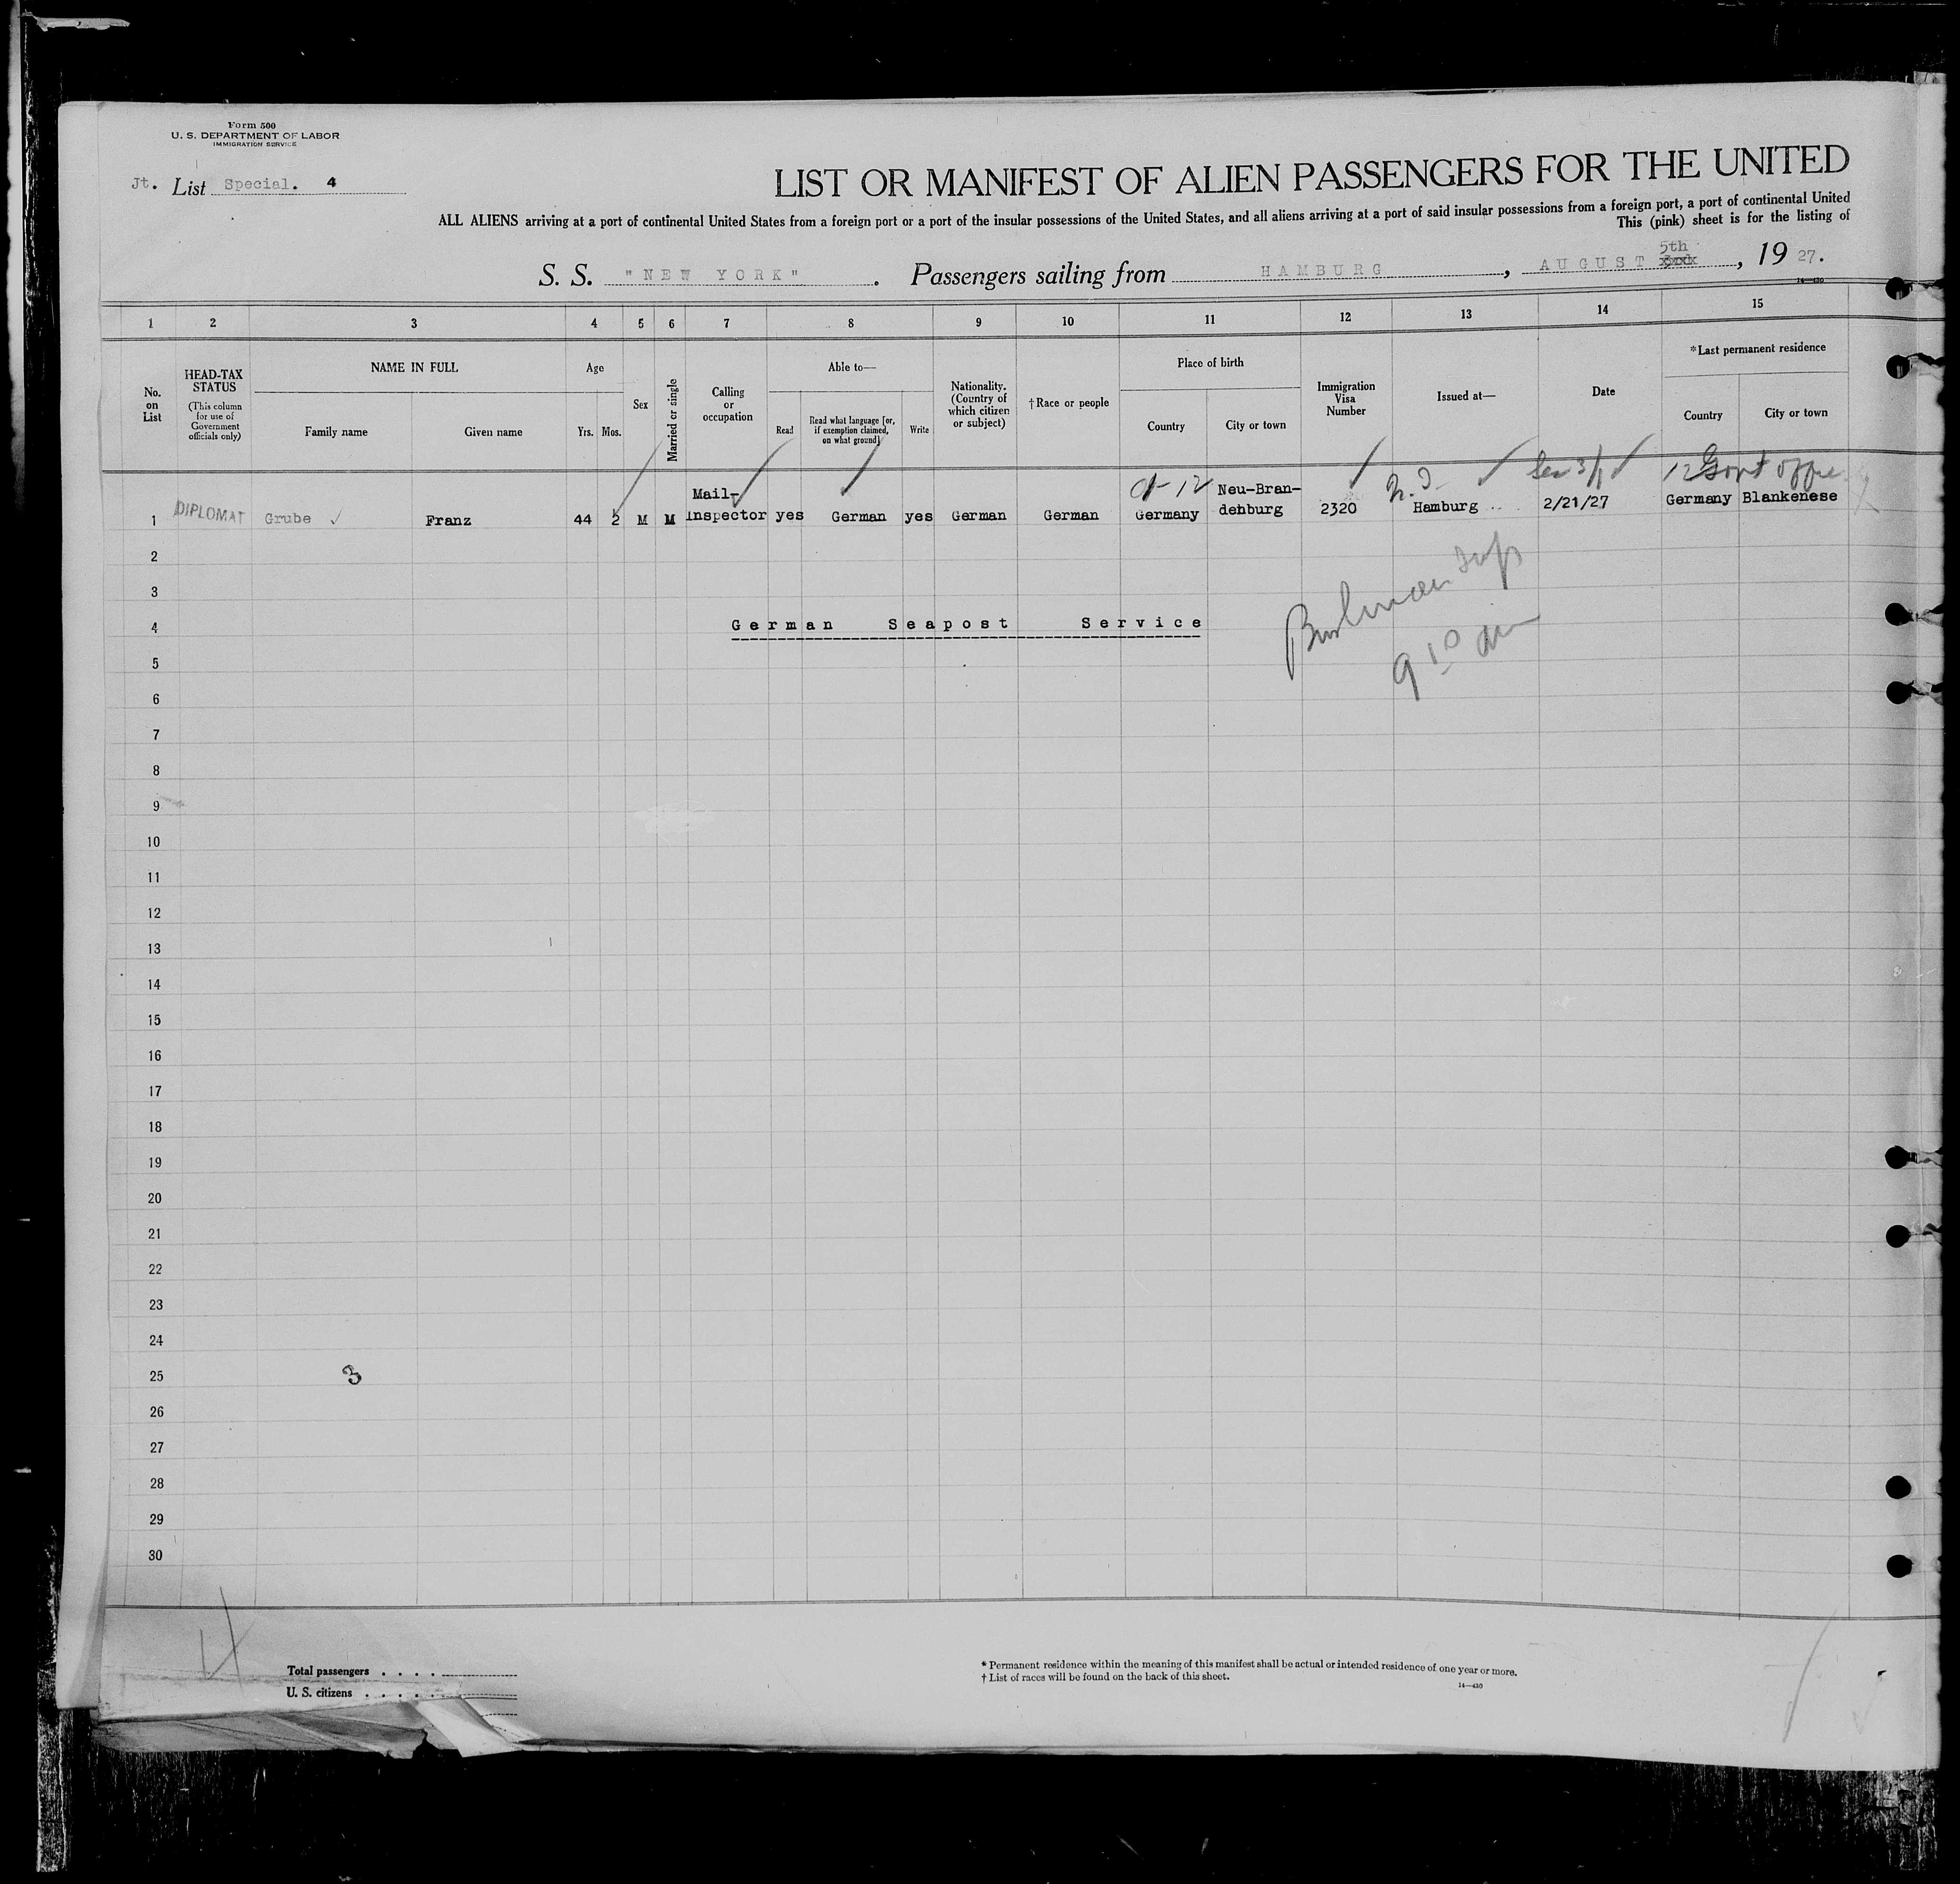 Form 500
U. S. DEPARTMENT OF LABOR
IMMIGRATION SERVICE
Jt. List Special. 4
LIST OR MANIFEST OF ALIEN PASSENGERS FOR THE UNITED
ALL ALIENS arriving at a port of continental United States from a foreign port or a port of the insular possessions of the United States, and all aliens arriving at a port of said insular possessions from a foreign port, a port of continental United
This (pink) sheet is for the listing of
5th
S. S. "NEW YORK" . Passengers sailing from HAMBURG , AUGUST , 19 27.
14—430
1 2 3 4 5 6 7 8 9 10 11 12 13 14 15
No. on List
HEAD-TAX STATUS
(This column for use of Government officials only)
NAME IN FULL
Family name Given name
Age
Yrs. Mos.
Sex
Married or single
Calling or occupation
Able to—
Read
Read what language [or, if exemption claimed, on what ground]
Write
Nationality. (Country of which citizen or subject)
†Race or people
Place of birth
Country City or town
Immigration Visa Number
Issued at—
Date
*Last permanent residence
Country City or town
12 Govt
1 DIPLOMAT Grube Franz 44 2 M M Mail-Inspector yes German yes German German Germany Neu-Brandenburg 2320 Hamburg 2/21/27 Germany Blankenese
2
3
4 German Seapost Service
9 10 am
5
6
7
8
9
10
11
12
13
14
15
16
17
18
19
20
21
22
23
24
25 3
26
27
28
29
30
Total passengers . . . .
U. S. citizens . . . . . .
* Permanent residence within the meaning of this manifest shall be actual or intended residence of one year or more.
† List of races will be found on the back of this sheet.
14—430